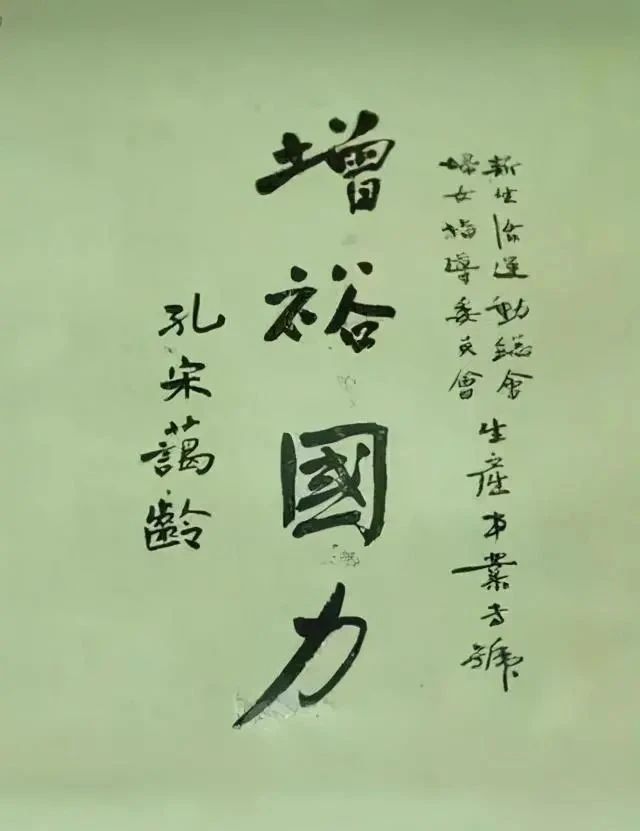 新生活運動總會
婦女指導委員會
生產事業專號
增裕國力
孔宋藹齡